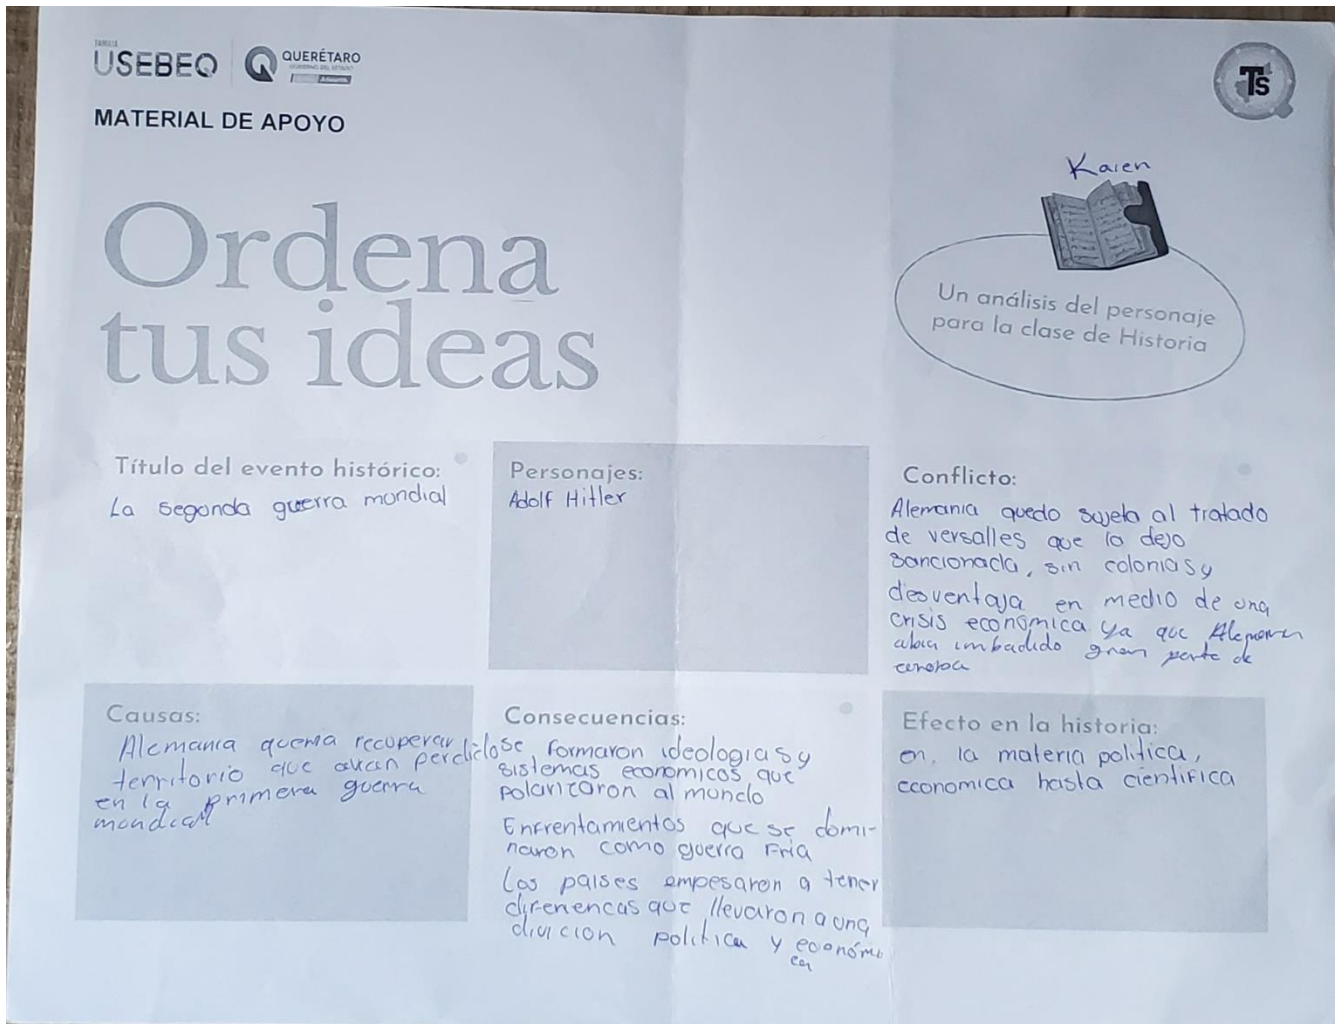 FAMILIA
USEBEQ
QUERÉTARO
GOBIERNO DEL ESTADO
Adelante
MATERIAL DE APOYO
Ts
Karen
Ordena
tus ideas
Un análisis del personaje
para la clase de Historia
Título del evento histórico:
La segonda guerra mondial
Personajes:
Adolf Hitler
Conflicto:
Alemania quedo sujeta al tratado
de versalles que la dejo
sancionada, sin colonias y
desventaja en medio de una
crisis económica ya que Alemania
abia imbadido gran parte de
europa
Causas:
Alemania queria recuperar
territorio que avian perdido
en la primera guerra
mondial
Consecuencias:
se formaron ideologias y
sistemas economicos que
polarizaron al mundo
Enfrentamientos que se domi-
naron como guerra Fria
Los paises empesaron a tener
diferencas que llevaron a una
divicion politica y económi
ca
Efecto en la historia:
en la materia politica,
economica hasta cientifica